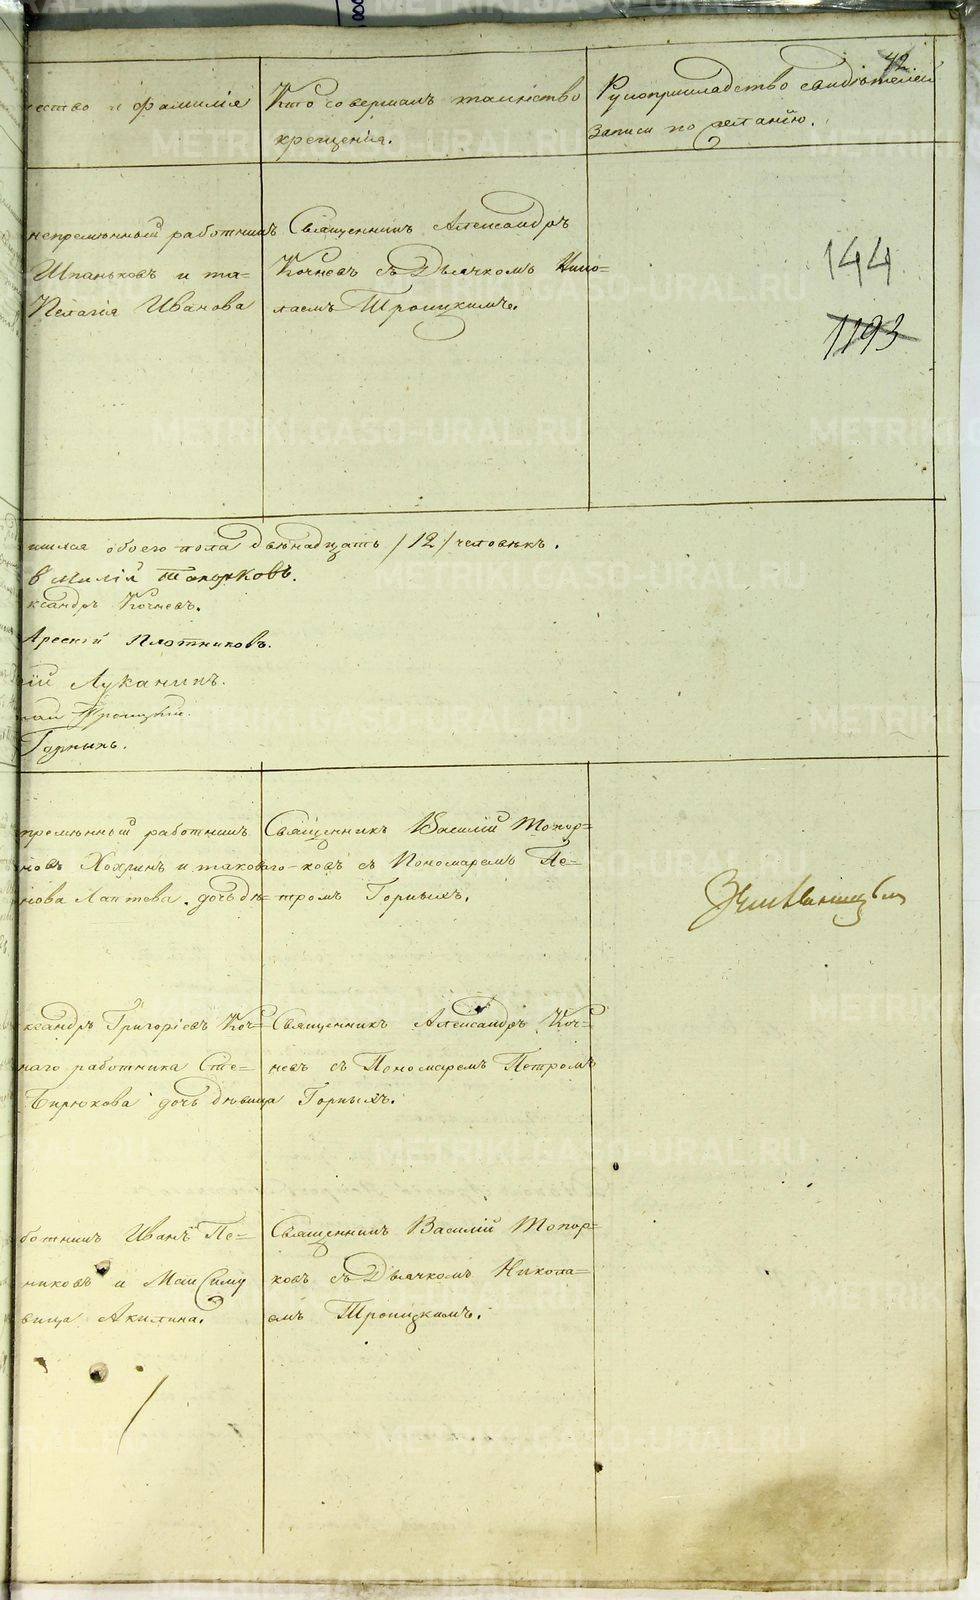 42
чество и фамилія
Кто совершалъ таинство
крещенія.
Рукоприкладство свидѣтелей
записи по желанію.
непремѣнный работникъ
Шпаньковъ и та-
Пелагія Иванова
Священникъ Александръ
Кочневъ съ Дьячкомъ Нико-
лаемъ Троицкимъ.
144
1193
обоего пола двѣнадцать /12/ человѣкъ.
Топорковъ.
ксандръ Кочневъ.
Плотниковъ.
ій Луканинъ.
лай Троицкій.
Горныхъ.
премѣнный работникъ
новъ Хохринъ и таковаго
нова Лаптева дочь дѣ-
Священникъ Василій Топор-
ковъ съ Пономаремъ Пе-
тромъ Горныхъ.
ксандръ Григоріевъ Коч-
наго работника Сте-
Бирюкова дочь дѣвица
Священникъ Александръ Коч-
невъ съ Пономаремъ Петромъ
Горныхъ.
ботникъ Иванъ Пе-
никовъ и Максиму
вица Акилина.
Священникъ Василій Топор-
ковъ съ Дьячкомъ Никола-
емъ Троицкимъ.
METRIKI.GASO-URAL.RU